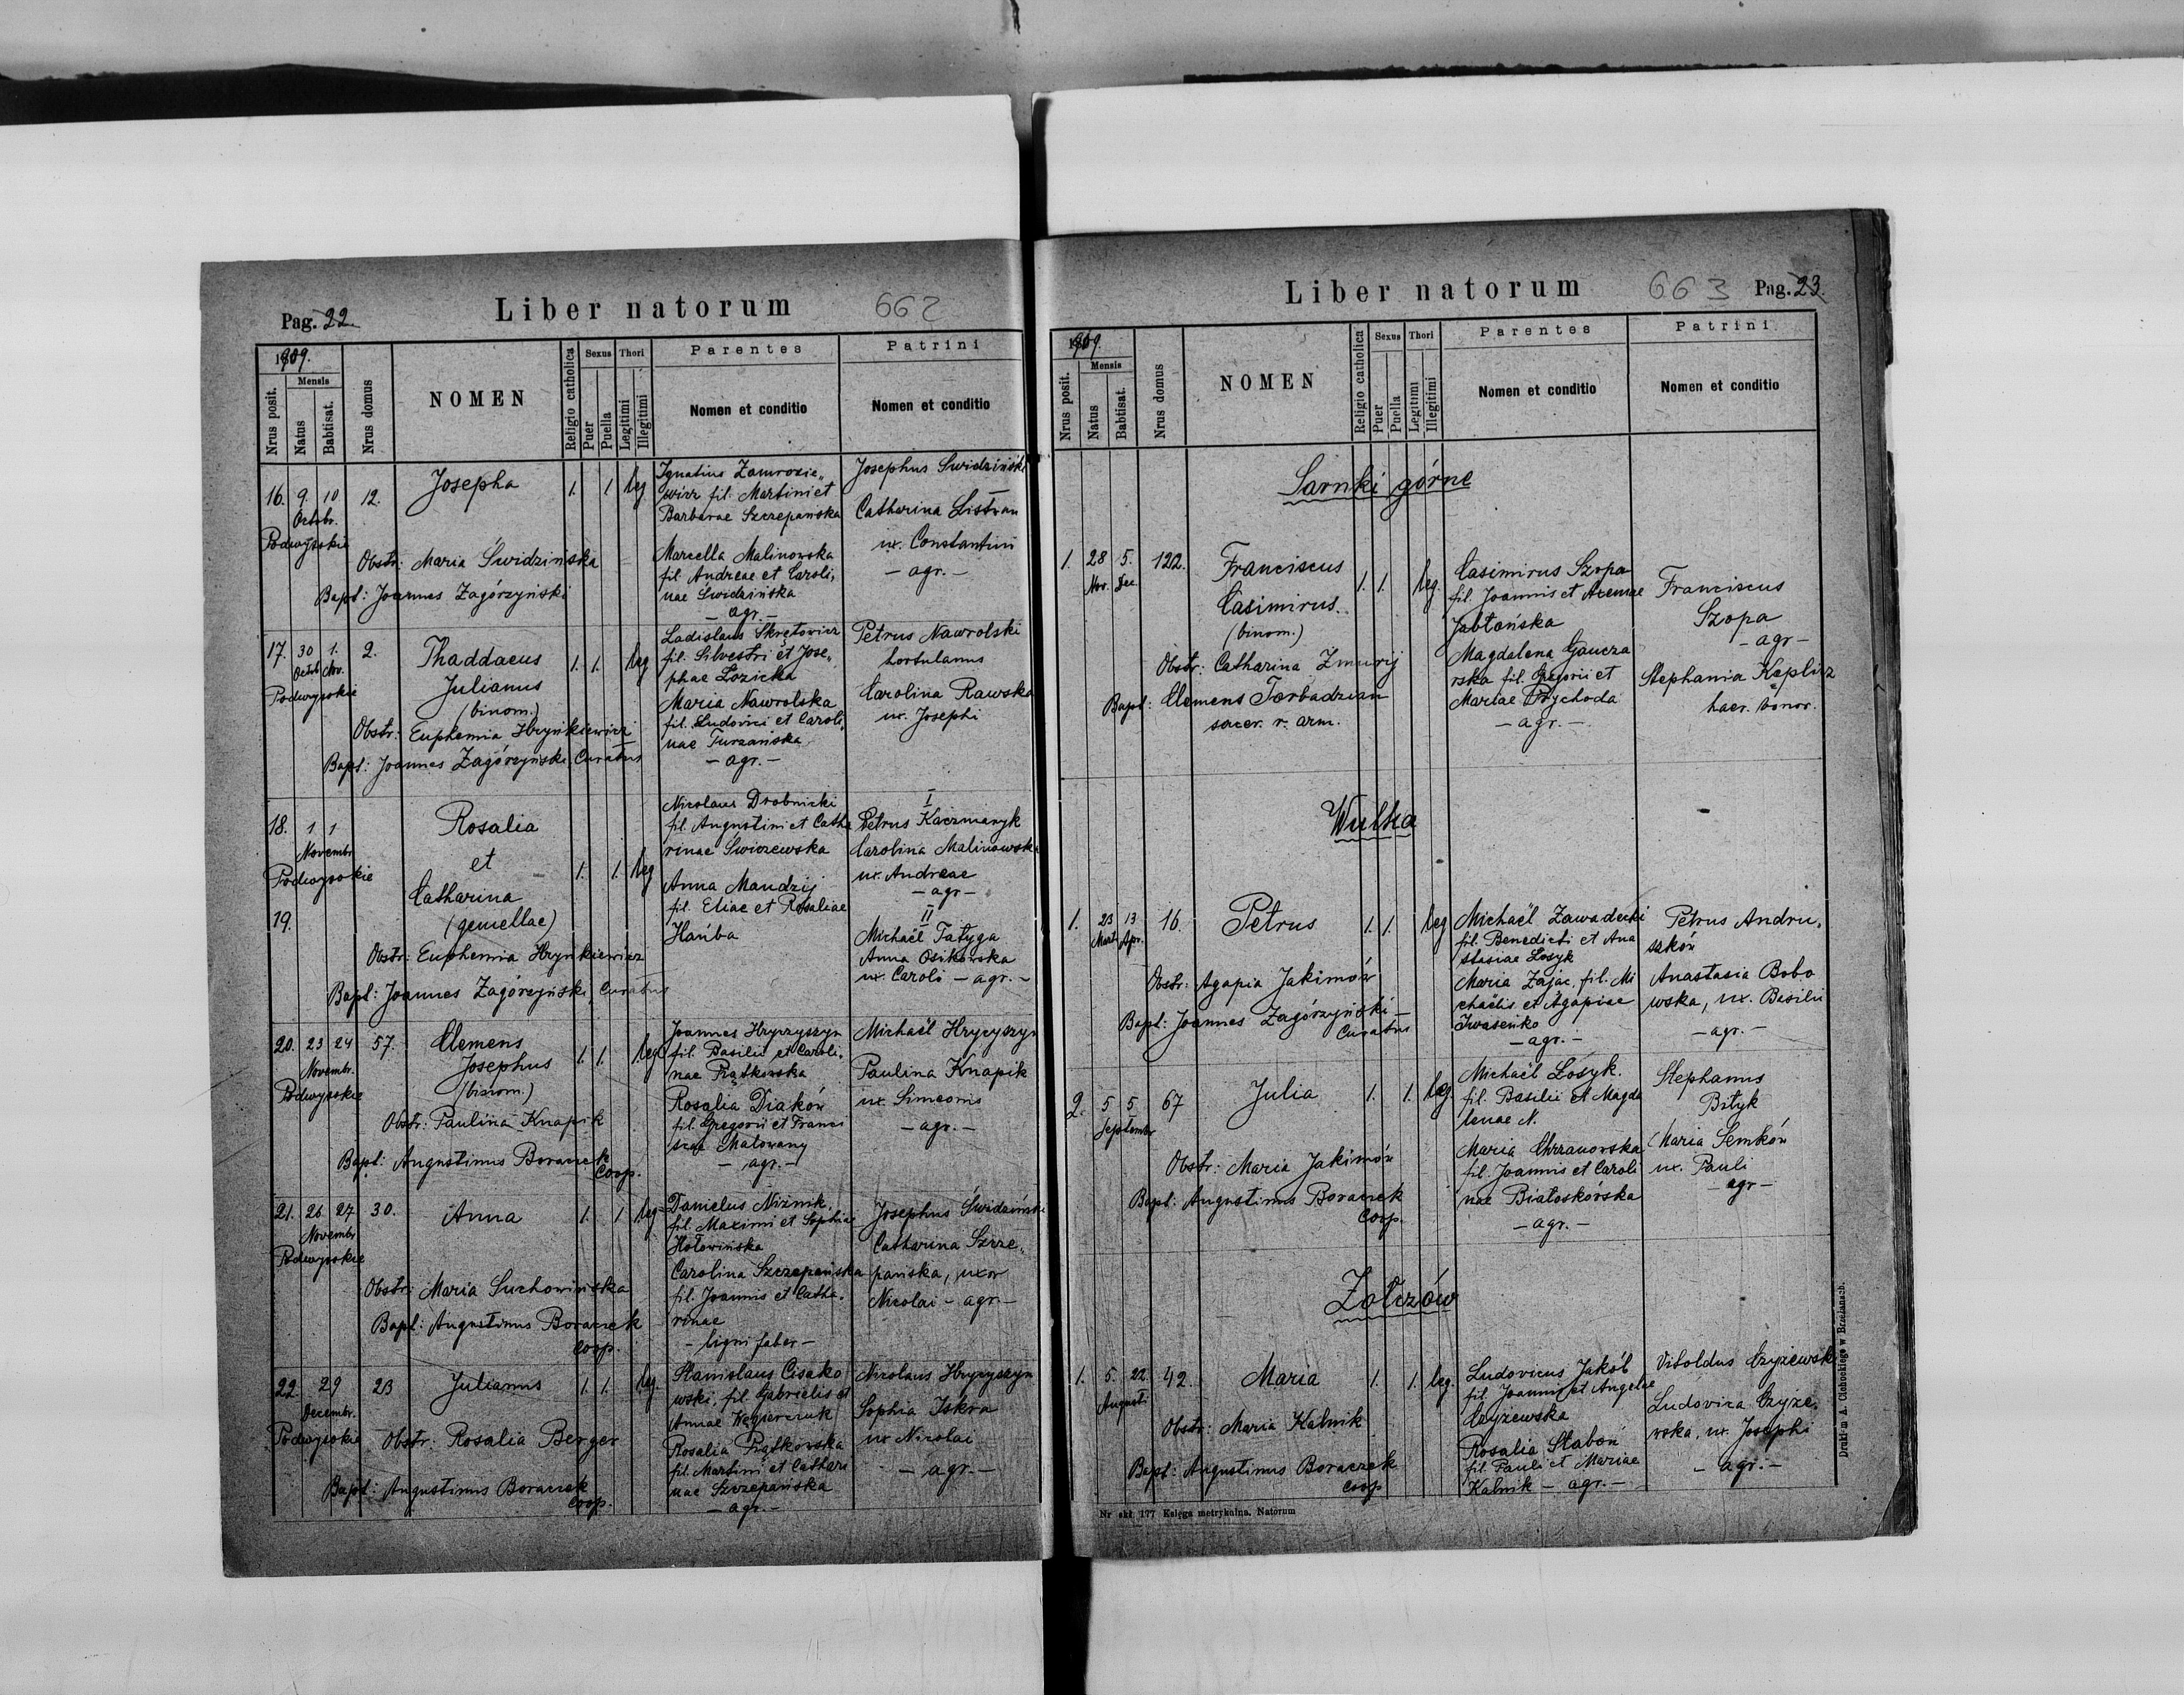 Pag. 22.
Liber natorum
662
1909.
Nrus posit.
Mensis
Natus
Babtisat.
Nrus domus
NOMEN
Religio catholica
Sexus
Puer
Puella
Thori
Legitimi
Illegitimi
Parentes
Nomen et conditio
Patrini
Nomen et conditio
16. 9. 10 12. Josepha 1. 1 leg
Octobr.
Podwysokie
Obstr: Maria Świdzińska
Bapt: Joannes Zagórzyński
Ignatius Zamrozie„
wicz fil. Martini et
Barbarae Szczepańska
Marcella Malinowska
fil. Andreae et Caroli„
nae Świdzińska
— agr. —
Josephus Swidziński
Catharina Listwan
ux. Constantini
— agr. —
17. 30 1. 2. Thaddaeus 1. 1. leg
Octob. Nov.
Podwysokie
Julianus
(binom.)
Obstr: Euphemia Hryńkiewicz
Bapt: Joannes Zagórzyński, Curatus
Ladislaus Skrętowicz
fil. Silvestri et Jose„
phae Łozicka
Maria Nawrolska
fil. Ludovici et Caroli„
nae Turzańska
— agr. —
Petrus Nawrolski
hortulanus
Carolina Rawska
ux. Josephi
18. 1 1 Rosalia
Novembr.
Podwysokie
et 1. 1. leg
Catharina
19. (gemellae)
Obstr: Euphemia Hryńkiewicz
Bapt: Joannes Zagórzyński, Curatus
Nicolaus Drobnicki
fil. Augustini et Catha
rinae Świszewska
Anna Mandzij
fil. Eliae et Rosaliae
Hańba
I
Petrus Kaczmaryk
Carolina Malinowska
ux. Andreae
— agr —
II
Michaël Tatyga
Anna Osikowska
ux. Caroli — agr. —
20. 23 24 57. Clemens 1. 1. leg
Novembr.
Podwysokie
Josephus
(binom.)
Obstr: Paulina Knapik
Bapt: Augustinus Boraczek
Coop.
Joannes Hrycyszyn
fil. Basilii et Caroli„
nae Prątkowska
Rosalia Diaków
fil. Gregorii et Franci
scae Malowany
— agr. —
Michaël Hrycyszyn
Paulina Knapik
ux. Simeonis
— agr. —
21. 26 27. 30. Anna 1. 1 leg
Novembr
Podwysokie
Obstr: Maria Suchowińska
Bapt: Augustinus Boraczek
Coop.
Danielus Niżnik,
fil. Maximi et Sophiae
Hołowińska
Carolina Szczepańska
fil. Joannis et Catha„
rinae
— ligni faber —
Josephus Świdziński
Catharina Szcze„
pańska, uxor
Nicolai — agr. —
22. 29 23 Julianus 1. 1. leg.
Decembr.
Podwysokie
Obstr: Rosalia Berger
Bapt: Augustinus Boraczek
Coop.
Stanislaus Cisako
wski, fil. Gabrielis et
Annae Węgierczuk
Rosalia Prątkowska
fil. Martini et Cathari
nae Szczepańska
— agr. —
Nicolaus Hrycyszyn
Sophia Iskra
ux Nicolai
— agr. —
Liber natorum
663
Pag. 23.
1909.
Nrus posit.
Mensis
Natus
Babtisat.
Nrus domus
NOMEN
Religio catholica
Sexus
Puer
Puella
Thori
Legitimi
Illegitimi
Parentes
Nomen et conditio
Patrini
Nomen et conditio
Sarnki górne
1. 28 5. 122. Franciscus 1. 1. leg.
Nov. Dec.
Casimirus
(binom.)
Obstr: Catharina Zmurij
Bapt: Clemens Torbadzian
sacer. r. arm.
Casimirus Szopa
fil. Joannis et Axeniae
Jabłońska
Magdalena Gaucza
rska fil. Gregorii et
Mariae Przychoda
— agr. —
Franciscus
Szopa
— agr —
Stephania Keplicz
haer. bonor.
Wulka
1. 23 13 16. Petrus 1. 1. leg
Mart. Apr.
Obstr: Agapia Jakimów
Bapt: Joannes Zagórzyński —
Curatus
Michaël Zawadecki
fil. Benedicti et Ana
stasiae Łosyk
Maria Zając, fil. Mi
chaëlis et Agapiae
Iwaseńko
— agr. —
Petrus Andru„
szków
Anastasia Bobo
wska, ux. Basilii
— agr. —
2. 5 5 67 Julia 1. 1. leg.
Septembr
Obstr: Maria Jakimów
Bapt: Augustinus Boraczek
Coop.
Michaël Łosyk.
fil. Basilii et Magda
lenae N.
Maria Chrzanowska
fil. Joannis et Caroli
nae Białoskórska
— agr. —
Stephanus
Bityk
Maria Semków
ux. Pauli
— agr —
Żołczów
1. 5. 22. 42. Maria 1. 1. leg.
August.
Obstr: Maria Kalnik
Bapt: Augustinus Boraczek
Coop
Ludovicus Jakób
fil. Joannis et Angelae
Czyżewska
Rosalia Słaboń
fil. Pauli et Mariae
Kalnik — agr. —
Vitoldus Czyżewski
Ludovica Czyże„
wska, ux. Josephi
— agr. —
Nr skł. 177 Księga metrykalna. Natorum
Drukiem A. Cichockiego w Brzeżanach.